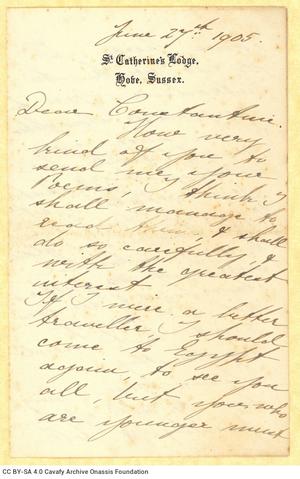 June 27th 1905.
St. Catherine's Lodge,
Hove, Sussex.
Dear Constantine.
How very
kind of you to
send me your
Poems, I think I
shall manage to
read them, & shall
do so carefully, &
with the greatest
interest
If I were a better
traveller I should
come to Egypt
again, to see you
all, but you who
are younger must
CC BY-SA 4.0 Cavafy Archive Onassis Foundation